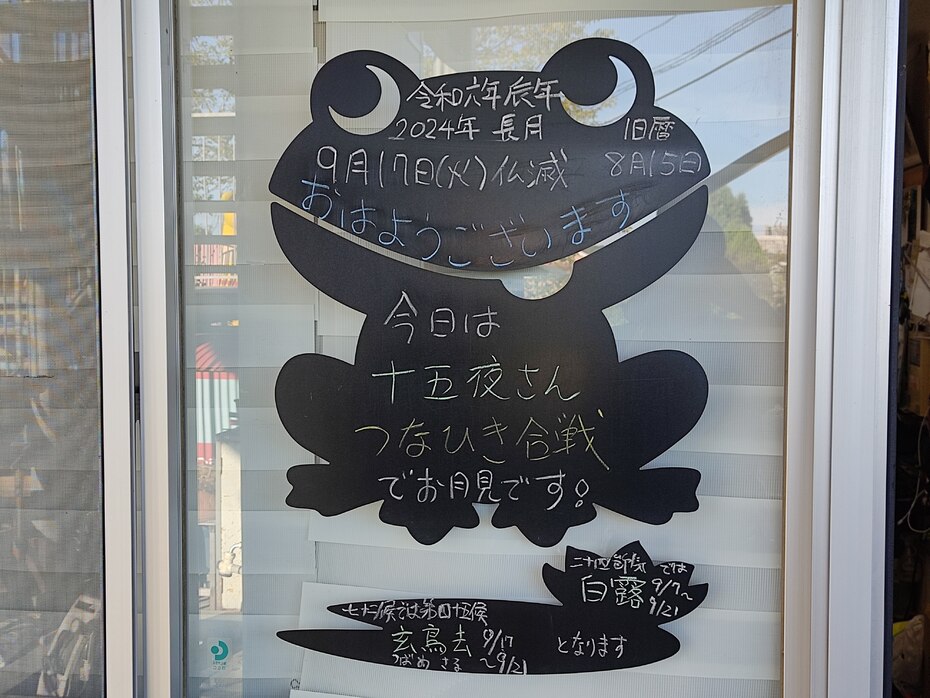 令和六年辰年
2024年 長月
旧暦
9月17日(火)仏滅 8月15日
おはようございます
今日は
十五夜さん
つなひき合戦
でお月見です!
二十四節気では
白露 9/7〜
9/21
七十二候では第四十五候
玄鳥去 9/17
つばめ さる 〜9/21
となります